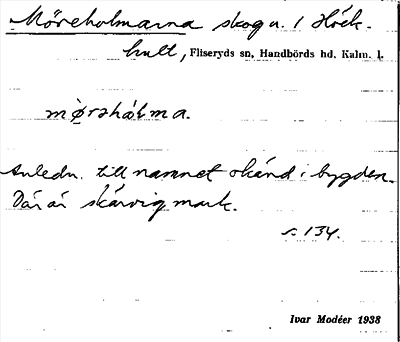 Möreholmarna skog u. 1 Höck-
hult, Fliseryds sn, Handbörds hd, Kalm. l.
mø̀rəhál̀ma.
Anledn. till namnet okänd i bygden.
Där är skärvig mark.
s. 134.
Ivar Modéer 1938